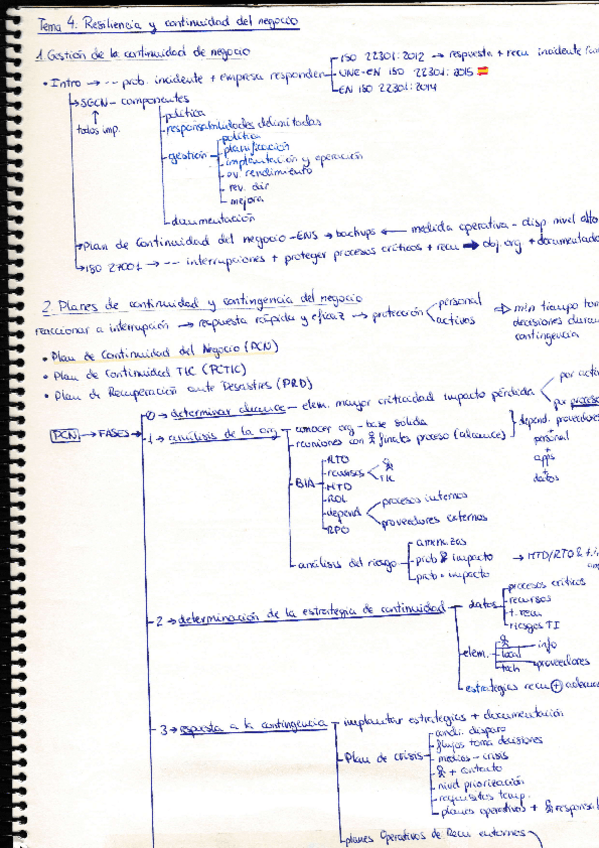 Tema 4. Resiliencia y continuidad del negocio
1. Gestión de la continuidad de negocio
• Intro → -- prob. incidente + empresa responden
ISO 22301:2012 → respuesta + recu incidente
UNE-EN ISO 22301:2015
EN ISO 22301:2014
→ SGCN - componentes
todos imp.
política
responsabilidades delimitadas
gestión
política
planificación
implantación y operación
ev rendimiento
rev. dir
mejora
documentación
→ Plan de Continuidad del negocio - ENS → backups ← medida operativa - disp nivel alto
→ ISO 27001 → -- interrupciones + proteger procesos críticos + recu ➡ obj. org + documentado
2. Planes de continuidad y contingencia del negocio
reaccionar a interrupción → respuesta rápida y eficaz → protección
personal
activos
⇒ min tiempo
decisiones
contingencia
• Plan de Continuidad del Negocio (PCN)
• Plan de Continuidad TIC (PCTIC)
• Plan de Recuperación ante Desastres (PRD)
PCN → FASES
0 → determinar alcance - elem. mayor criticidad impacto pérdida
por
por proceso
1 → análisis de la org
conocer org - base sólida
reuniones con finales proceso (alcance)
depend. proveedores
+
personal
+
apps
+
datos
BIA
RTO
recursos
TIC
MTD
ROL
depend
procesos internos
proveedores externos
RPO
análisis del riesgo
amenazas
prob & impacto
prob + impacto
→ MTD/RTO &
2 → determinación de la estrategia de continuidad
datos
procesos críticos
recursos
t. recu
riesgos TI
elem.
local
tech
info
proveedores
estrategias recu +
3 → respuesta a la contingencia
implantar estrategias + documentación
Plan de crisis
condi. disparo
flujos toma decisiones
medios - crisis
+ contacto
nivel priorización
requisitos temp.
planes operativos +
planes Operativos de Recu entornos